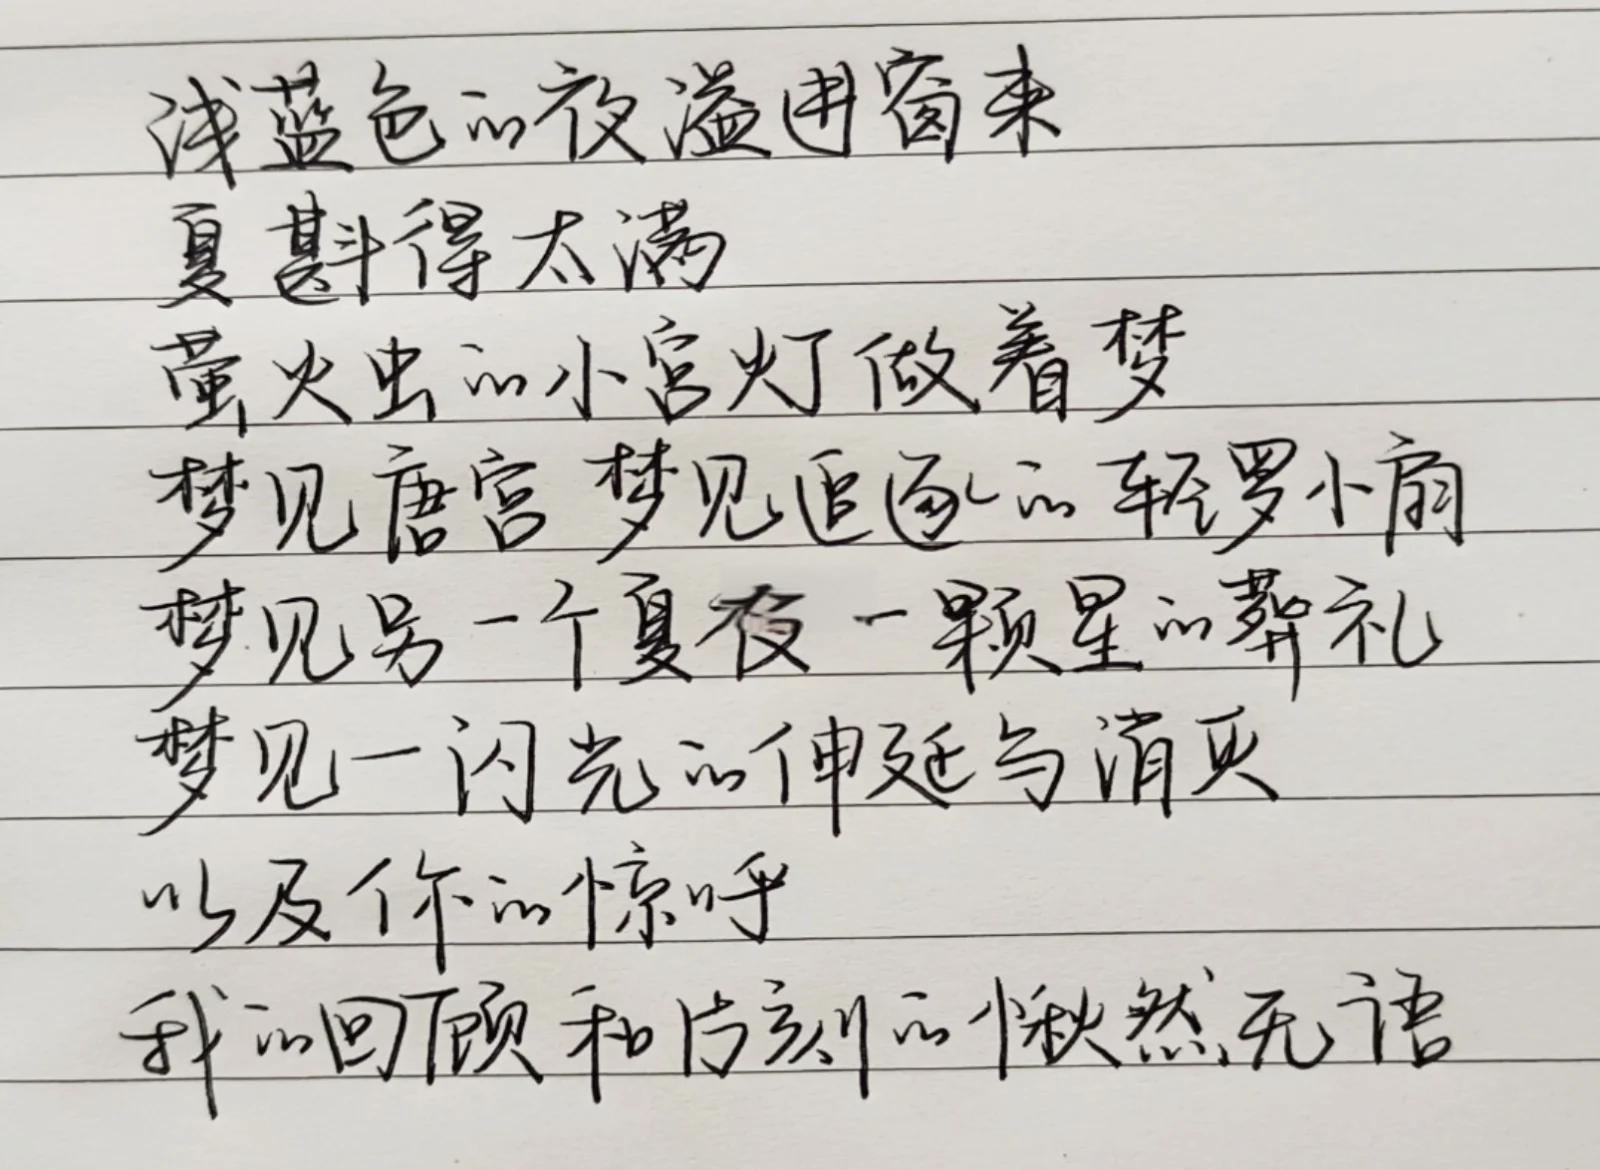 浅蓝色的夜溢进窗来
夏斟得太满
萤火虫的小宫灯做着梦
梦见唐宫 梦见追逐的轻罗小扇
梦见另一个夏夜 一颗星的葬礼
梦见一闪光的伸延与消灭
以及你的惊呼
我的回顾和片刻的愀然无语